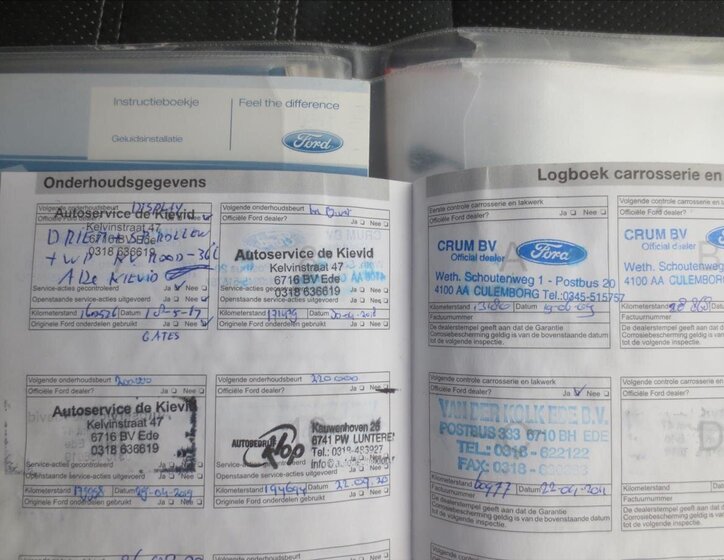 Instructieboekje
Feel the difference
Geluidsinstallatie
Ford
Onderhoudsgegevens
Volgende onderhoudsbeurt DISPLAY
Officiële Ford dealer? Ja Nee
Autoservice de Kievid
Kelvinstraat 47
6716 BV Ede
0318 636619
DRIEM + SP ROLLEN
A DE KIEVID
Service-acties gecontroleerd Ja Nee
Openstaande service-acties uitgevoerd Ja Nee
Kilometerstand 160526 Datum
Originele Ford onderdelen gebruikt Ja Nee
GATES
Volgende onderhoudsbeurt
Officiële Ford dealer? Ja Nee
Autoservice de Kievid
Kelvinstraat 47
6716 BV Ede
0318 636619
Service-acties gecontroleerd Ja Nee
Openstaande service-acties uitgevoerd Ja Nee
Kilometerstand 171479 Datum
Originele Ford onderdelen gebruikt Ja Nee
Volgende onderhoudsbeurt 200000
Officiële Ford dealer? Ja Nee
Autoservice de Kievid
Kelvinstraat 47
6716 BV Ede
0318 636619
Service-acties gecontroleerd Ja Nee
Openstaande service-acties uitgevoerd Ja Nee
Kilometerstand Datum
Originele Ford onderdelen gebruikt Ja Nee
Volgende onderhoudsbeurt 220000
Officiële Ford dealer? Ja Nee
AUTOBEDRIJF Klop
Kauwenhoven 26
6741 PW LUNTEREN
Tel.: 0318-483927
Service-acties gecontroleerd Ja Nee
Openstaande service-acties uitgevoerd Ja Nee
Kilometerstand Datum
Originele Ford onderdelen gebruikt Ja Nee
Logboek carrosserie en
Eerste controle carrosserie en lakwerk
Officiële Ford dealer? Ja Nee
A
CRUM BV
Official dealer
Ford
Weth. Schoutenweg 1 - Postbus 20
4100 AA CULEMBORG Tel.:0345-515757
Kilometerstand Datum
Factuurnummer
De dealerstempel geeft aan dat de Garantie
Corrosiebescherming geldig is van bovenstaande datum
tot de volgende inspectie.
Volgende controle carrosserie en
Officiële Ford dealer?
CRUM BV
Official dealer
Weth. Schoutenweg
4100 AA CULEMBORG
Kilometerstand
Factuurnummer
De dealerstempel geeft aan dat
Corrosiebescherming geldig is van
tot de volgende inspectie.
Volgende controle carrosserie en lakwerk
Officiële Ford dealer? Ja Nee
VAN DER KOLK EDE B.V.
POSTBUS 333 6710 BH EDE
TEL.: 0318 - 622122
FAX: 0318 -
Kilometerstand 60977 Datum 22-04-2011
Factuurnummer
De dealerstempel geeft aan dat de Garantie
Corrosiebescherming geldig is van bovenstaande datum
tot de volgende inspectie.
Volgende controle carrosserie en
Officiële Ford dealer?
D
Kilometerstand
Factuurnummer
De dealerstempel geeft aan dat
Corrosiebescherming geldig is
tot de volgende inspectie.